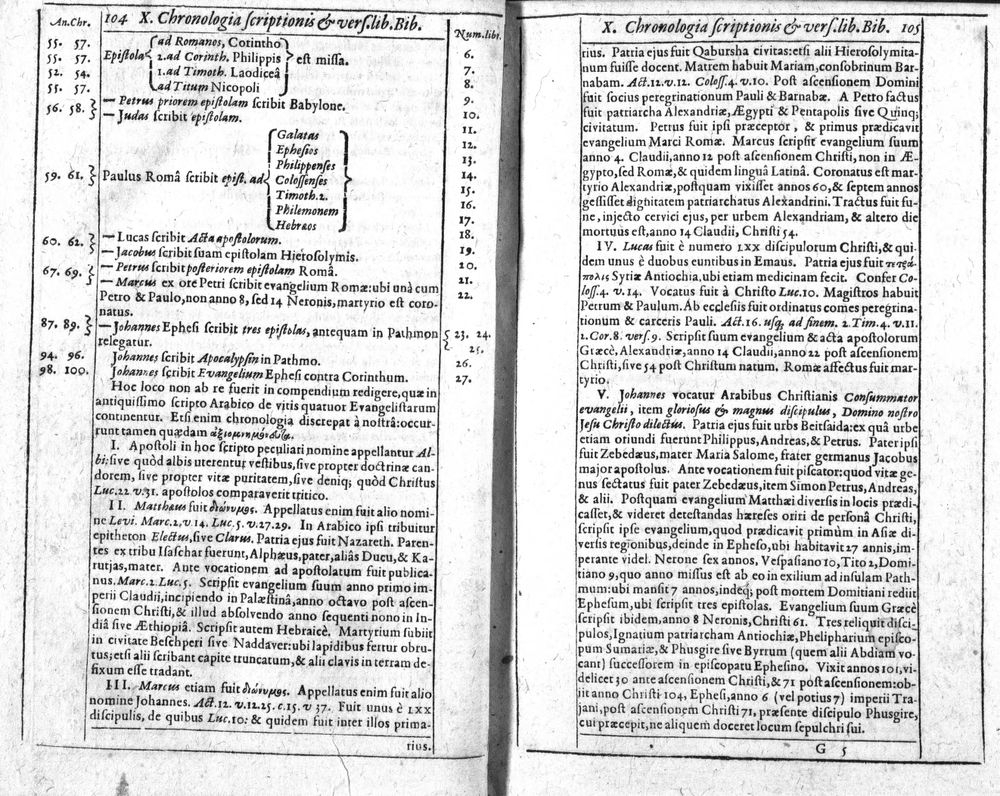 An.Chr. 104 X. Chronologia scriptionis & vers.lib.Bib. Num.libr.
55. 57. Epistola ad Romanos, Corintho est missa. 6.
55. 57. 2.ad Corinth. Philippis 7.
52. 54. 1.ad Timoth. Laodiceâ 8.
55. 57. ad Titum Nicopoli
56. 58. — Petrus priorem epistolam scribit Babylone. 9.
— Judas scribit epistolam. 10.
59. 61. Paulus Româ scribit epist. ad
Galatas 11.
Ephesios 12.
Philippenses 13.
Colossenses 14.
Timoth.2. 15.
Philemonem 16.
Hebræos 17.
60. 62. — Lucas scribit Acta apostolorum. 18.
— Jacobus scribit suam epistolam Hierosolymis. 19.
67. 69. — Petrus scribit posteriorem epistolam Româ. 20.
— Marcus ex ore Petri scribit evangelium Romæ:ubi unà cum 21.
Petro & Paulo, non anno 8, sed 14 Neronis, martyrio est coro- 22.
natus.
87. 89. — Johannes Ephesi scribit tres epistolas, antequam in Pathmon 23. 24.
relegatur. 25.
94. 96. Johannes scribit Apocalypsin in Pathmo. 26.
98. 100. Johannes scribit Evangelium Ephesi contra Corinthum. 27.
Hoc loco non ab re fuerit in compendium redigere, quæ in
antiquissimo scripto Arabico de vitis quatuor Evangelistarum
continentur. Etsi enim chronologia discrepat à nostrâ:occur-
runt tamen quædam ἀξιομνημόνευτα.
I. Apostoli in hoc scripto peculiari nomine appellantur Al-
bi:sive quòd albis uterentur vestibus, sive propter doctrinæ can-
dorem, sive propter vitæ puritatem, sive deniq; quòd Christus
Luc.22 v.31. apostolos comparaverit tritico.
II. Matthæus fuit διώνυμος. Appellatus enim fuit alio nomi-
ne Levi. Marc.2,v.14. Luc.5. v.27.29. In Arabico ipsi tribuitur
epitheton Electus, sive Clarus. Patria ejus fuit Nazareth. Paren-
tes ex tribu Isaschar fuerunt, Alphæus, pater, aliàs Ducu, & Ka-
rutjas, mater. Ante vocationem ad apostolatum fuit publica-
nus. Marc.2. Luc.5. Scripsit evangelium suum anno primo im-
perii Claudii, incipiendo in Palæstinâ, anno octavo post ascen-
sionem Christi, & illud absolvendo anno sequenti nono in In-
diâ sive Æthiopiâ. Scripsit autem Hebraicè. Martyrium subiit
in civitate Beschperi sive Naddaver:ubi lapidibus fertur obru-
tus:etsi alii scribant capite truncatum, & alii clavis in terram de-
fixum esse tradant.
III. Marcus etiam fuit διώνυμος. Appellatus enim fuit alio
nomine Johannes. Act.12. v.12.25. c.15. v 37. Fuit unus è LXX
discipulis, de quibus Luc.10: & quidem fuit inter illos prima-
rius.
X. Chronologia scriptionis & vers.lib.Bib. 105
rius. Patria ejus fuit Qabursha civitas:etsi alii Hierosolymita-
num fuisse docent. Matrem habuit Mariam, consobrinum Bar-
nabam. Act.12.v.12. Coloss.4. v.10. Post ascensionem Domini
fuit socius peregrinationum Pauli & Barnabæ. A Petro factus
fuit patriarcha Alexandriæ, Ægypti & Pentapolis sive Quinq;
civitatum. Petrus fuit ipsi præceptor, & primus prædicavit
evangelium Marci Romæ. Marcus scripsit evangelium suum
anno 4. Claudii, anno 12 post ascensionem Christi, non in Æ-
gypto, sed Romæ, & quidem linguâ Latinâ. Coronatus est mar-
tyrio Alexandriæ, postquam vixisset annos 60, & septem annos
gessisset dignitatem patriarchatus Alexandrini. Tractus fuit fu-
ne, injecto cervici ejus, per urbem Alexandriam, & altero die
mortuus est, anno 14 Claudii, Christi 54.
IV. Lucas fuit è numero LXX discipulorum Christi, & qui-
dem unus è duobus euntibus in Emaus. Patria ejus fuit τετρά-
πολις Syriæ Antiochia, ubi etiam medicinam fecit. Confer Co-
loss.4. v.14. Vocatus fuit à Christo Luc.10. Magistros habuit
Petrum & Paulum. Ab ecclesiis fuit ordinatus comes peregrina-
tionum & carceris Pauli. Act.16. usq; ad finem. 2.Tim.4.v.11.
2.Cor.8. vers.9. Scripsit suum evangelium & acta apostolorum
Græcè, Alexandriæ, anno 14 Claudii, anno 22 post ascensionem
Christi, sive 54 post Christum natum. Romæ affectus fuit mar-
tyrio.
V. Johannes vocatur Arabibus Christianis Consummator
evangelii, item gloriosus & magnus discipulus, Domino nostro
Jesu Christo dilectus. Patria ejus fuit urbs Beitsaida:ex quâ urbe
etiam oriundi fuerunt Philippus, Andreas, & Petrus. Pater ipsi
fuit Zebedæus, mater Maria Salome, frater germanus Jacobus
major apostolus. Ante vocationem fuit piscator:quod vitæ ge-
nus sectatus fuit pater Zebedæus, item Simon Petrus, Andreas,
& alii. Postquam evangelium Matthæi diversis in locis prædi-
casset, & videret detestandas hæreses oriri de personâ Christi,
scripsit ipse evangelium, quod prædicavit primùm in Asiæ di-
versis regionibus, deinde in Epheso, ubi habitavit 27 annis, im-
perante videl. Nerone sex annos, Vespasiano 10, Tito 2, Domi-
tiano 9, quo anno missus est ab eo in exilium ad insulam Path-
mum:ubi mansit 7 annos, indeq; post mortem Domitiani rediit
Ephesum, ubi scripsit tres epistolas. Evangelium suum Græcè
scripsit ibidem, anno 8 Neronis, Christi 61. Tres reliquit disci-
pulos, Ignatium patriarcham Antiochiæ, Phelipharium episco-
pum Sumariæ, & Phusgire sive Byrrum (quem alii Abdiam vo-
cant) successorem in episcopatu Ephesino. Vixit annos 101, vi-
delicet 30 ante ascensionem Christi, & 71 post ascensionem:ob-
iit anno Christi 104, Ephesi, anno 6 (vel potius 7) imperii Tra-
jani, post ascensionem Christi 71, præsente discipulo Phusgire,
cui præcepit, ne aliquem doceret locum sepulchri sui.
G 5